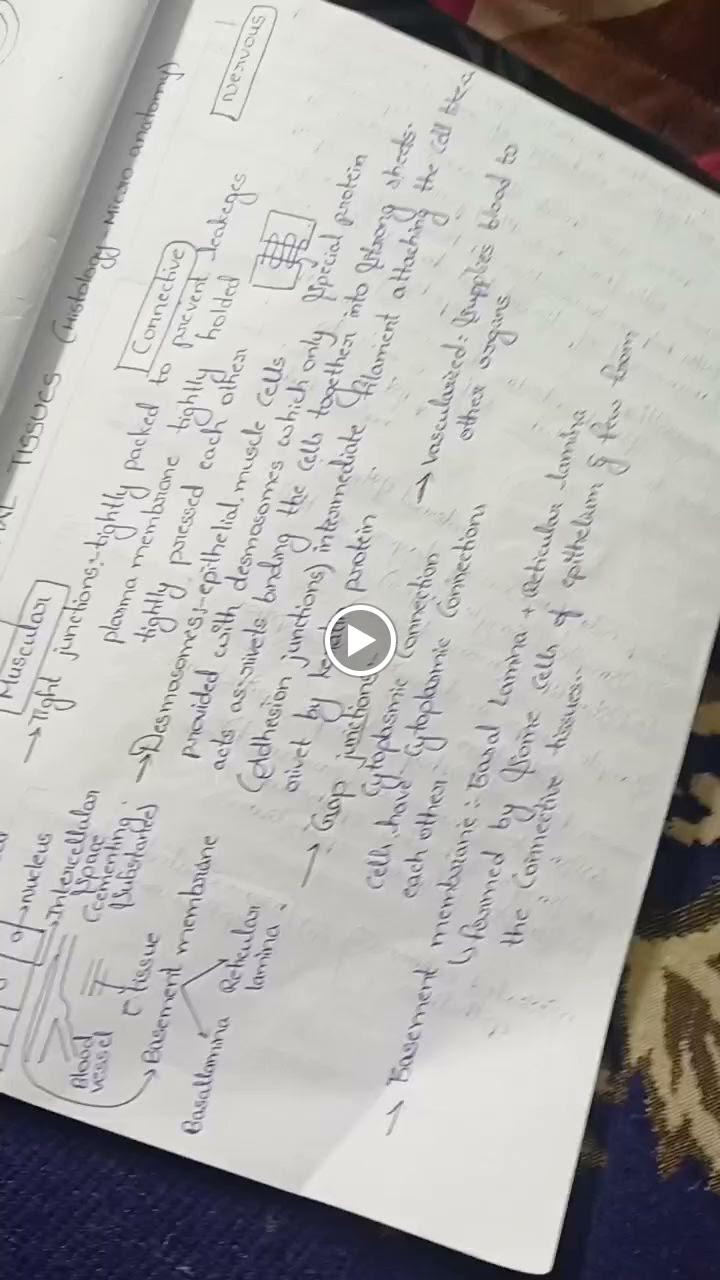 TISSUES (Histology - Micro anatomy)
Muscular
Connective
Nervous
→ Tight junctions:- tightly packed to prevent leakeges
plasma membrane tightly holded
tightly pressed each other
→ Desmasomes:- epithelial, muscle cells
provided with desmasomes which only special protein
acts as rivets binding the cells together into strong sheets.
(adhesion junctions) intermediate filament attaching the cell
rivet by protein
→ Gap junctions:
Cytoplasmic connection
cells have cytoplasmic connections
each other
→ vascularized: supplies blood to
other organs
→ Basement membrane: Basal Lamina + Reticular lamina
↳ formed by some cells of epithelium & few from
the Connective tissues.
→ nucleus
→ Intercellular
space
(cementing
substances)
Blood
vessel
tissue
→ Basement membrane
Basallamina
Reticular
lamina.